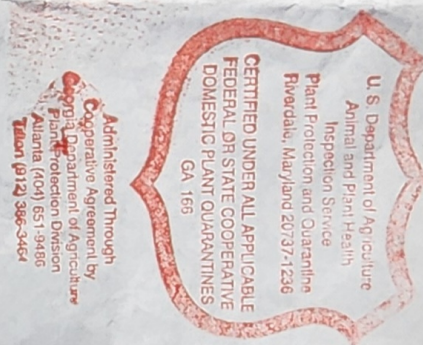 U. S. Department of Agriculture
Animal and Plant Health
Inspection Service
Plant Protection and Quarantine
Riverdale, Maryland 20737-1236
CERTIFIED UNDER ALL APPLICABLE
FEDERAL OR STATE COOPERATIVE
DOMESTIC PLANT QUARANTINES
GA 166
Administered Through
Cooperative Agreement by
Georgia Department of Agriculture
Plant Protection Division
Atlanta (404) 651-9486
Tifton (912) 386-3464